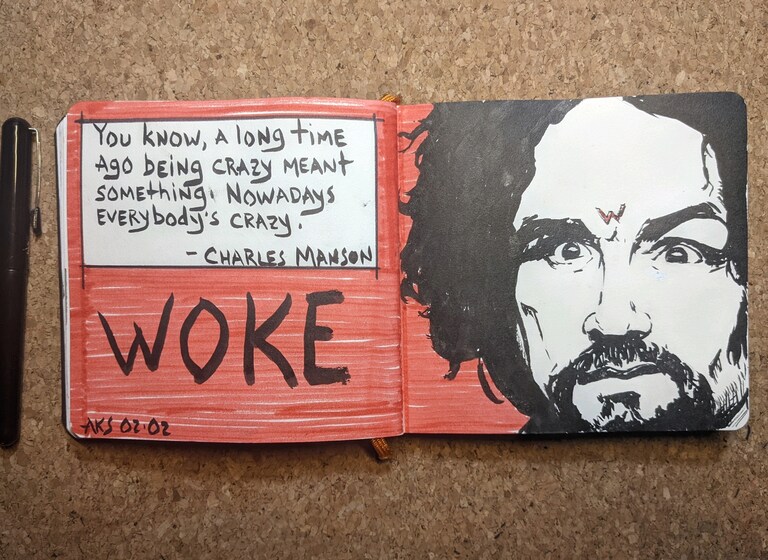 You know, A long time
Ago being crazy meant
something. Nowadays
everybody's crazy.
- Charles Manson
WOKE
AKS 02·02
W